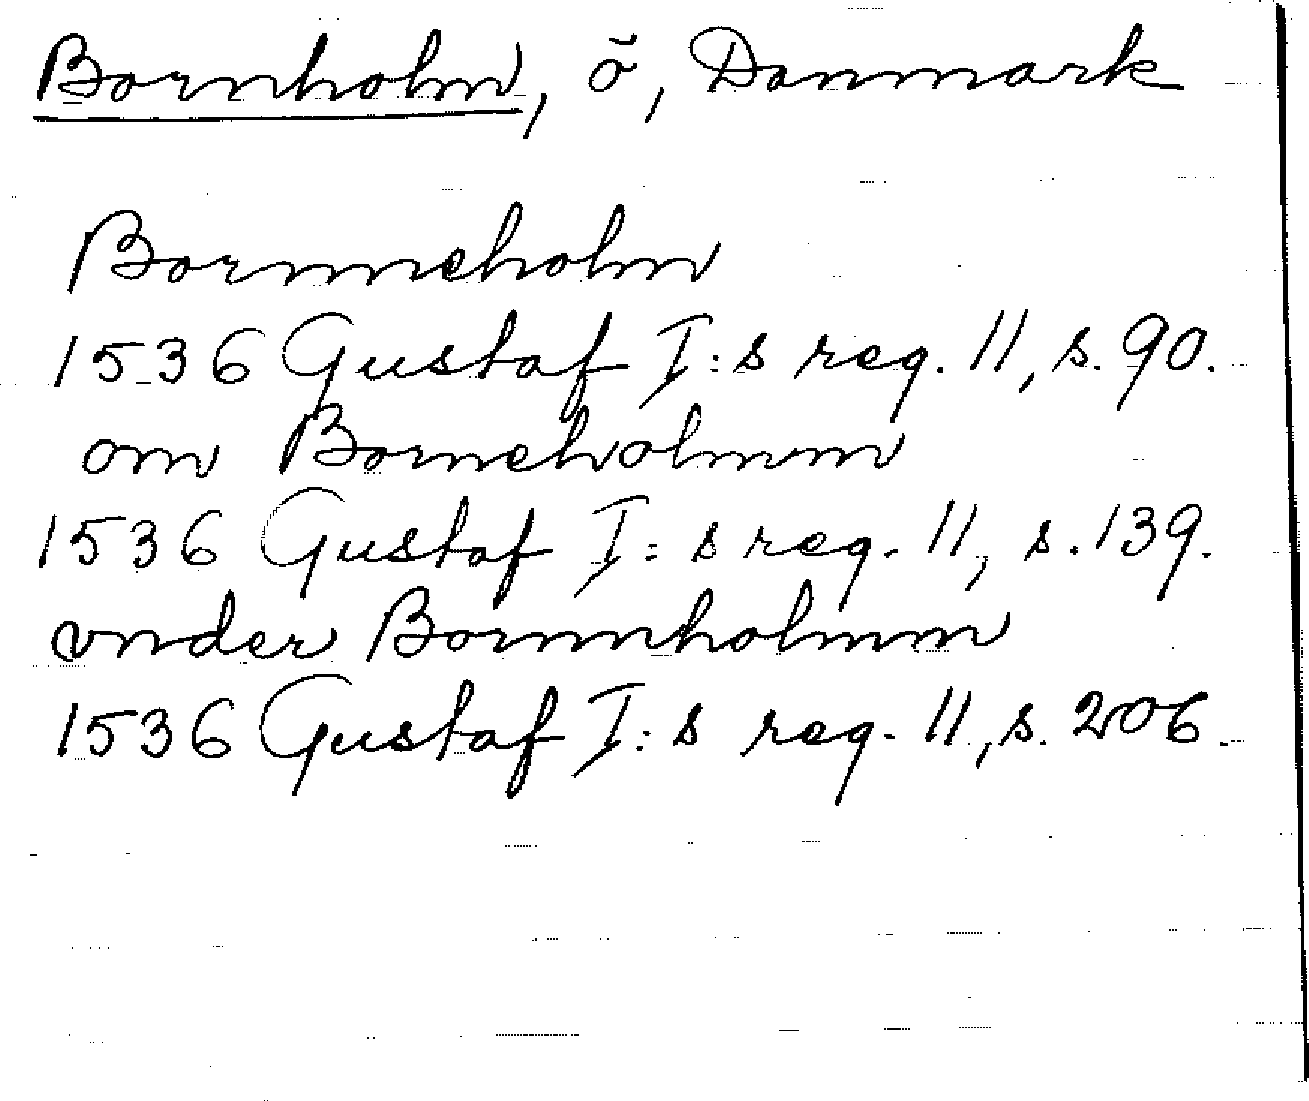 Bornholm, ö, Danmark
Bornneholm
1536 Gustaf I:s reg. 11, s. 90.
om Borneholmm
1536 Gustaf I:s reg. 11, s. 139.
vnder Bornnholmm
1536 Gustaf I:s reg. 11, s. 206.